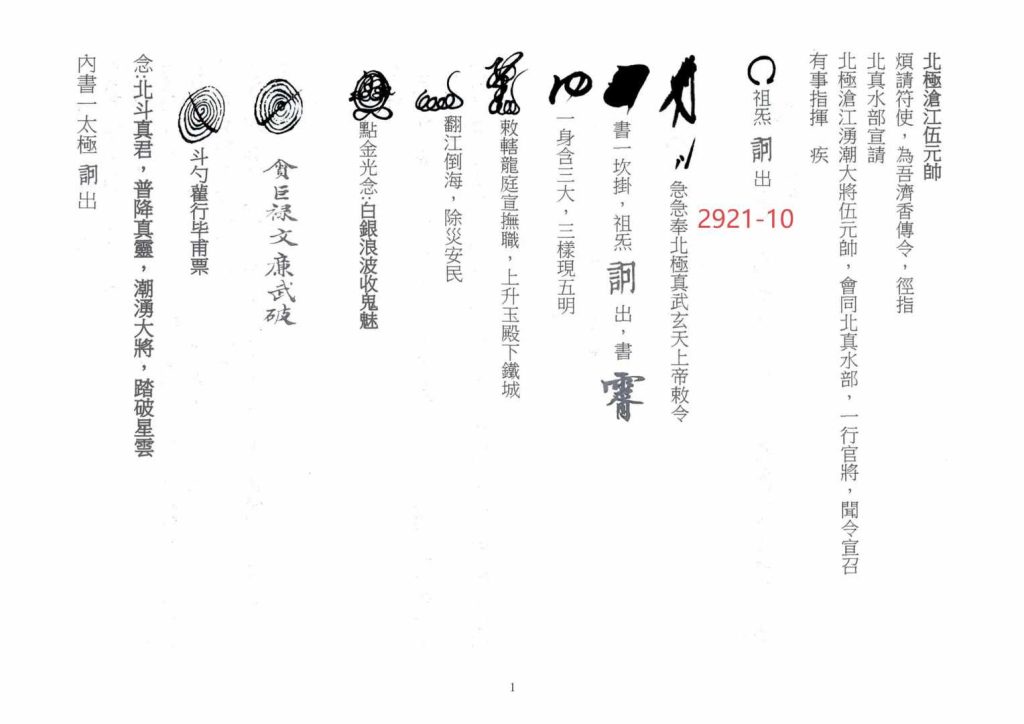 北極滄江伍元帥
煩請符使，為吾濟香傳令，徑指
北真水部宣請
北極滄江湧潮大將伍元帥，會同北真水部，一行官將，聞令宣召
有事指揮　疾
祖炁 出
2921-10
急急奉北極真武玄天上帝敕令
書一坎掛，祖炁 出，書
一身含三大，三樣現五明
敕轄龍庭宣撫職，上升玉殿下鐵城
翻江倒海，除災安民
點金光念:白銀浪波收鬼魅
貪巨祿文廉武破
斗勺雚行毕甫票
念:北斗真君，普降真靈，潮湧大將，踏破星雲
內書一太極 出
1